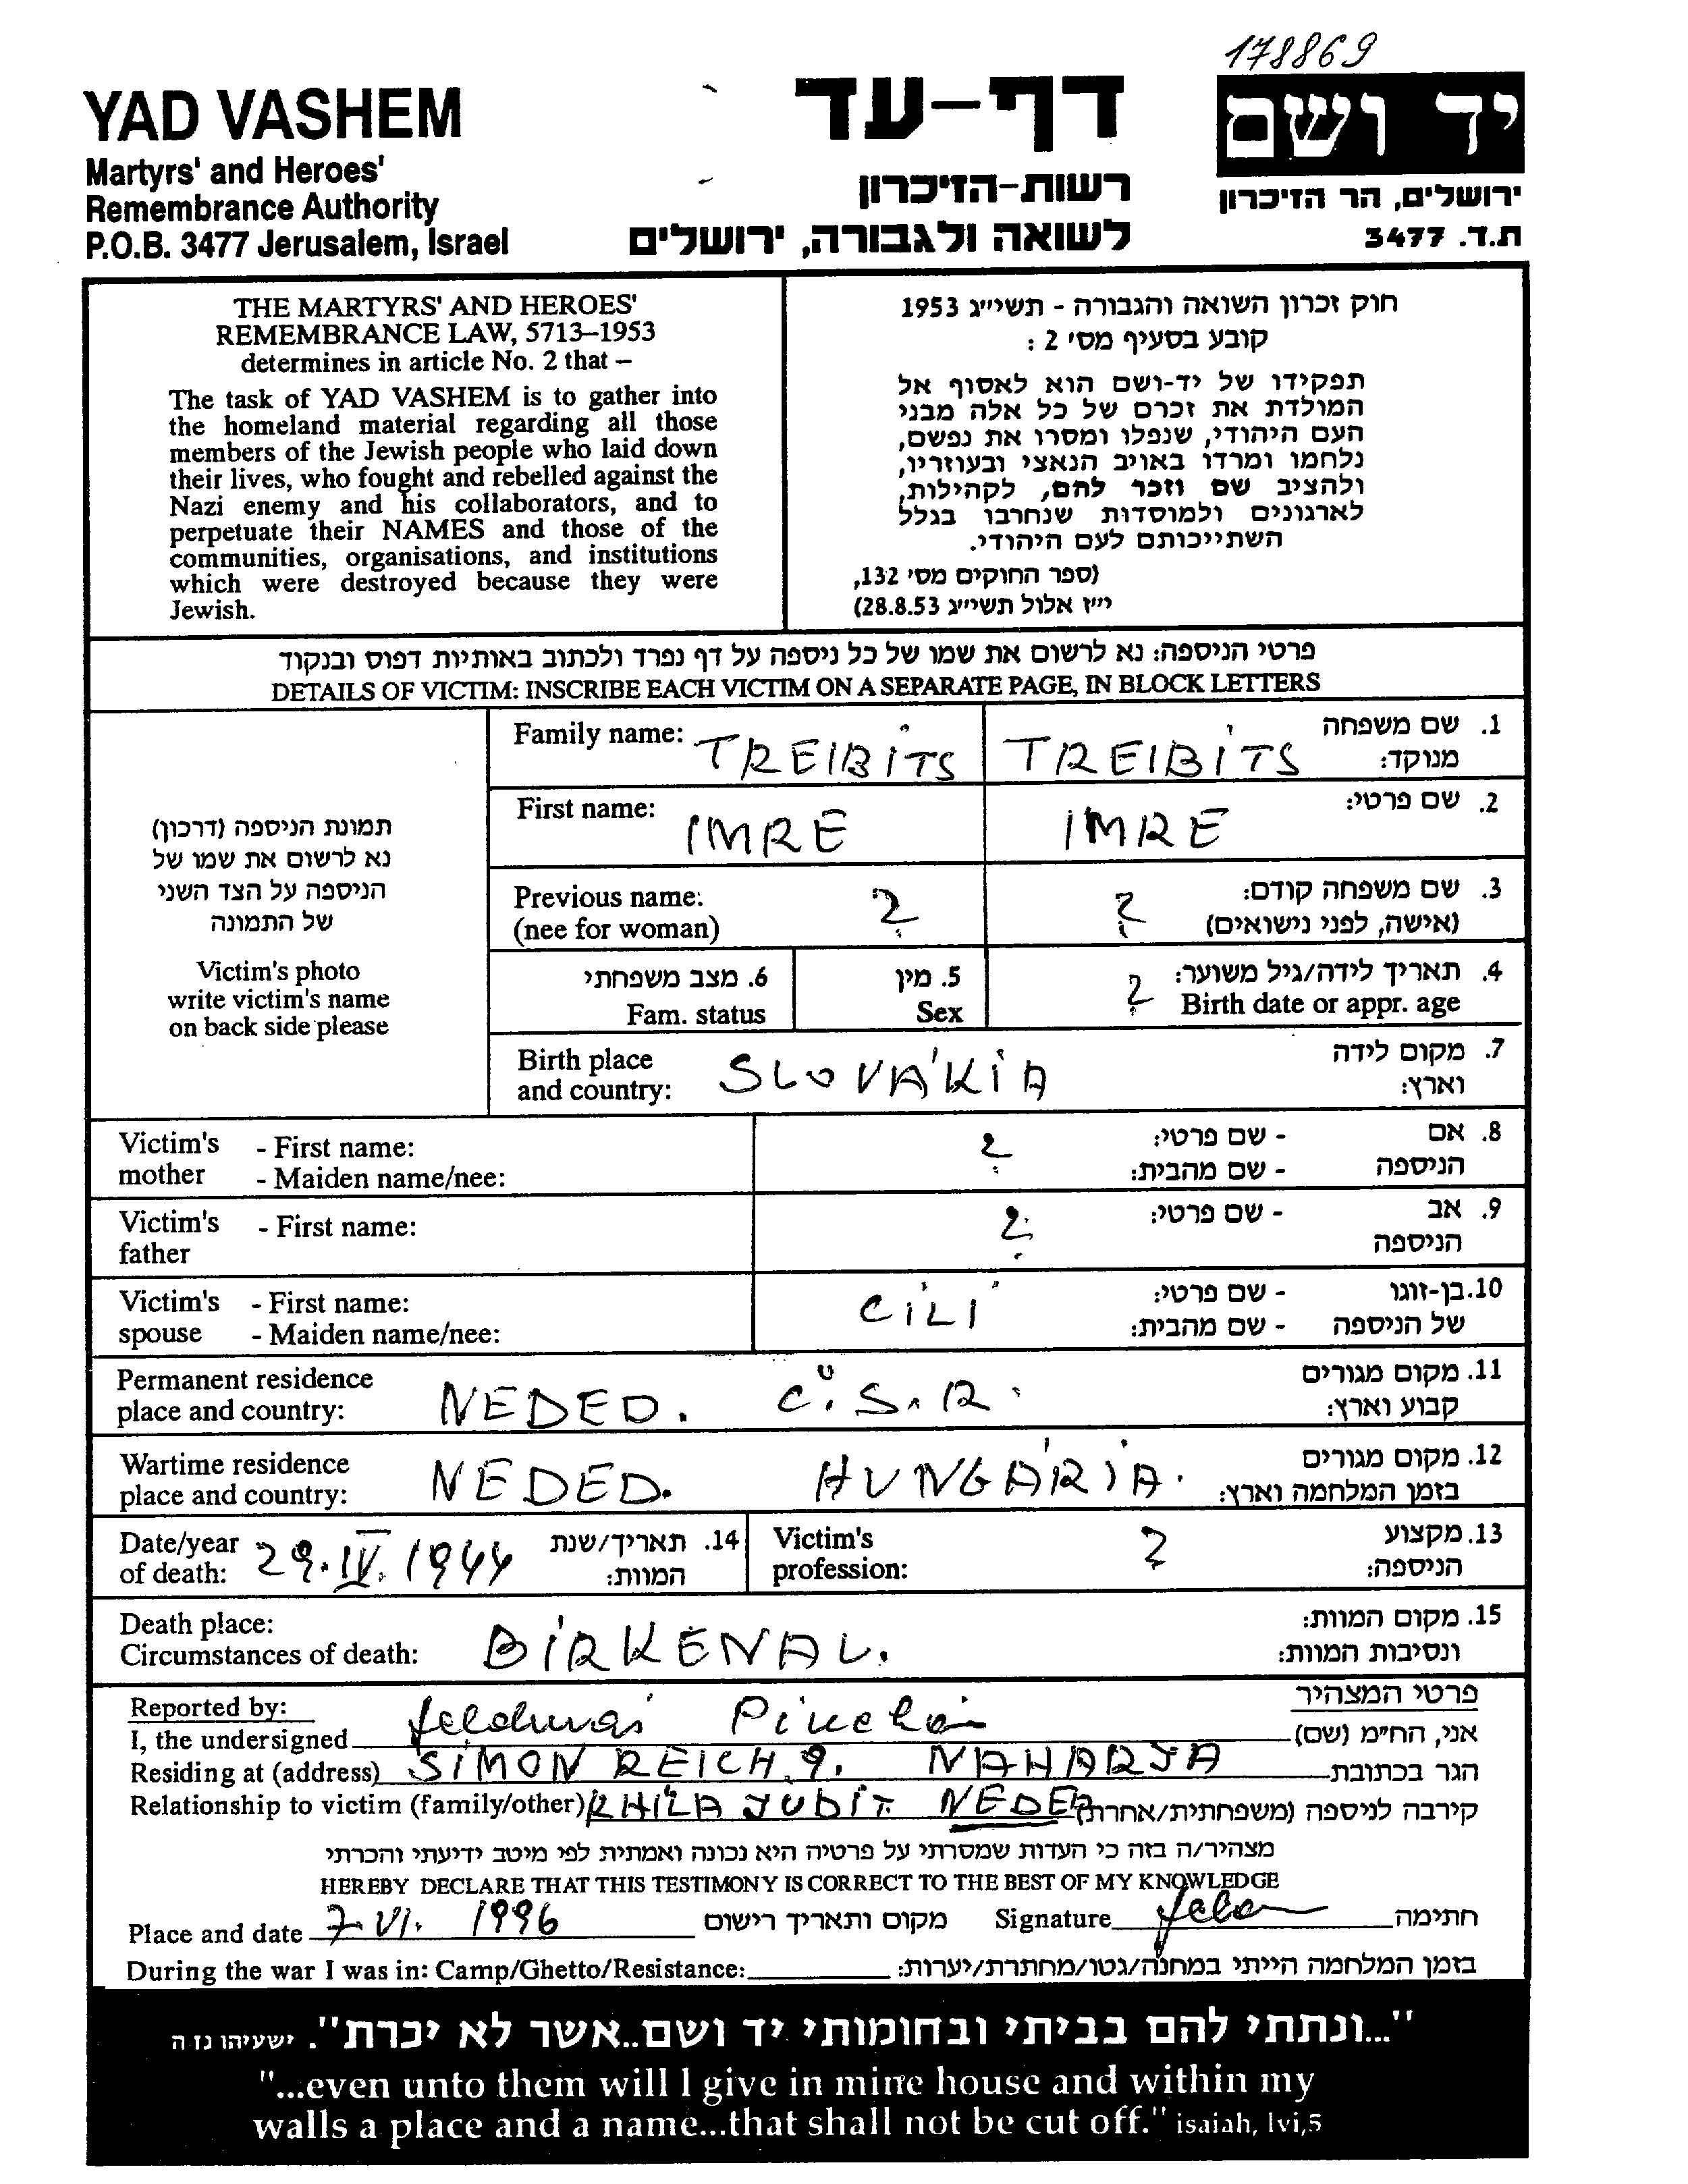 178869
YAD VASHEM
Martyrs' and Heroes'
Remembrance Authority
P.O.B. 3477 Jerusalem, Israel
דף-עד
רשות-הזיכרון
לשואה ולגבורה, ירושלים
יד ושם
ירושלים, הר הזיכרון
ת.ד. 3477
THE MARTYRS' AND HEROES'
REMEMBRANCE LAW, 5713–1953
determines in article No. 2 that –
The task of YAD VASHEM is to gather into
the homeland material regarding all those
members of the Jewish people who laid down
their lives, who fought and rebelled against the
Nazi enemy and his collaborators, and to
perpetuate their NAMES and those of the
communities, organisations, and institutions
which were destroyed because they were
Jewish.
חוק זכרון השואה והגבורה - תשי״ג 1953
קובע בסעיף מס׳ 2 :
תפקידו של יד-ושם הוא לאסוף אל
המולדת את זכרם של כל אלה מבני
העם היהודי, שנפלו ומסרו את נפשם,
נלחמו ומרדו באויב הנאצי ובעוזריו,
ולהציב שם וזכר להם, לקהילות,
לארגונים ולמוסדות שנחרבו בגלל
השתייכותם לעם היהודי.
(ספר החוקים מס׳ 132,
י״ז אלול תשי״ג 28.8.53)
פרטי הניספה: נא לרשום את שמו של כל ניספה על דף נפרד ולכתוב באותיות דפוס ובנקוד
DETAILS OF VICTIM: INSCRIBE EACH VICTIM ON A SEPARATE PAGE, IN BLOCK LETTERS
תמונת הניספה (דרכון)
נא לרשום את שמו של
הניספה על הצד השני
של התמונה
Victim's photo
write victim's name
on back side please
Family name: TREIBITS TREIBITS 1. שם משפחה
מנוקד:
First name: IMRE IMRE 2. שם פרטי:
Previous name: ? ? 3. שם משפחה קודם:
(nee for woman) (אישה, לפני נישואים)
6. מצב משפחתי 5. מין ? 4. תאריך לידה/גיל משוער:
Fam. status Sex Birth date or appr. age
Birth place SLOVÁKIA 7. מקום לידה
and country: וארץ:
Victim's - First name: ? - שם פרטי: 8. אם
mother - Maiden name/nee: - שם מהבית: הניספה
Victim's - First name: ? - שם פרטי: 9. אב
father הניספה
Victim's - First name: CILI - שם פרטי: 10. בן-זוגו
spouse - Maiden name/nee: - שם מהבית: של הניספה
Permanent residence NEDED. Č.S.R. 11. מקום מגורים
place and country: קבוע וארץ:
Wartime residence NEDED. HUNGÁRIA. 12. מקום מגורים
place and country: בזמן המלחמה וארץ:
Date/year 29.IV.1944 14. תאריך/שנת Victim's ? 13. מקצוע
of death: המוות: profession: הניספה:
Death place: BIRKENAU. 15. מקום המוות:
Circumstances of death: ונסיבות המוות:
Reported by: פרטי המצהיר
I, the undersigned אני, הח״מ (שם)
Residing at (address) SIMON REICH 9. NAHARJA הגר בכתובת
Relationship to victim (family/other) JUDIT NEDED קירבה לניספה (משפחתית/אחרת)
מצהיר/ה בזה כי העדות שמסרתי על פרטיה היא נכונה ואמתית לפי מיטב ידיעתי והכרתי
HEREBY DECLARE THAT THIS TESTIMONY IS CORRECT TO THE BEST OF MY KNOWLEDGE
Place and date 7.VI. 1996 מקום ותאריך רישום Signature חתימה
During the war I was in: Camp/Ghetto/Resistance: בזמן המלחמה הייתי במחנה/גטו/מחתרת/יערות:
"...ונתתי להם בביתי ובחומותי יד ושם..אשר לא יכרת". ישעיהו נו ה
"...even unto them will I give in mine house and within my
walls a place and a name...that shall not be cut off." isaiah, lvi,5